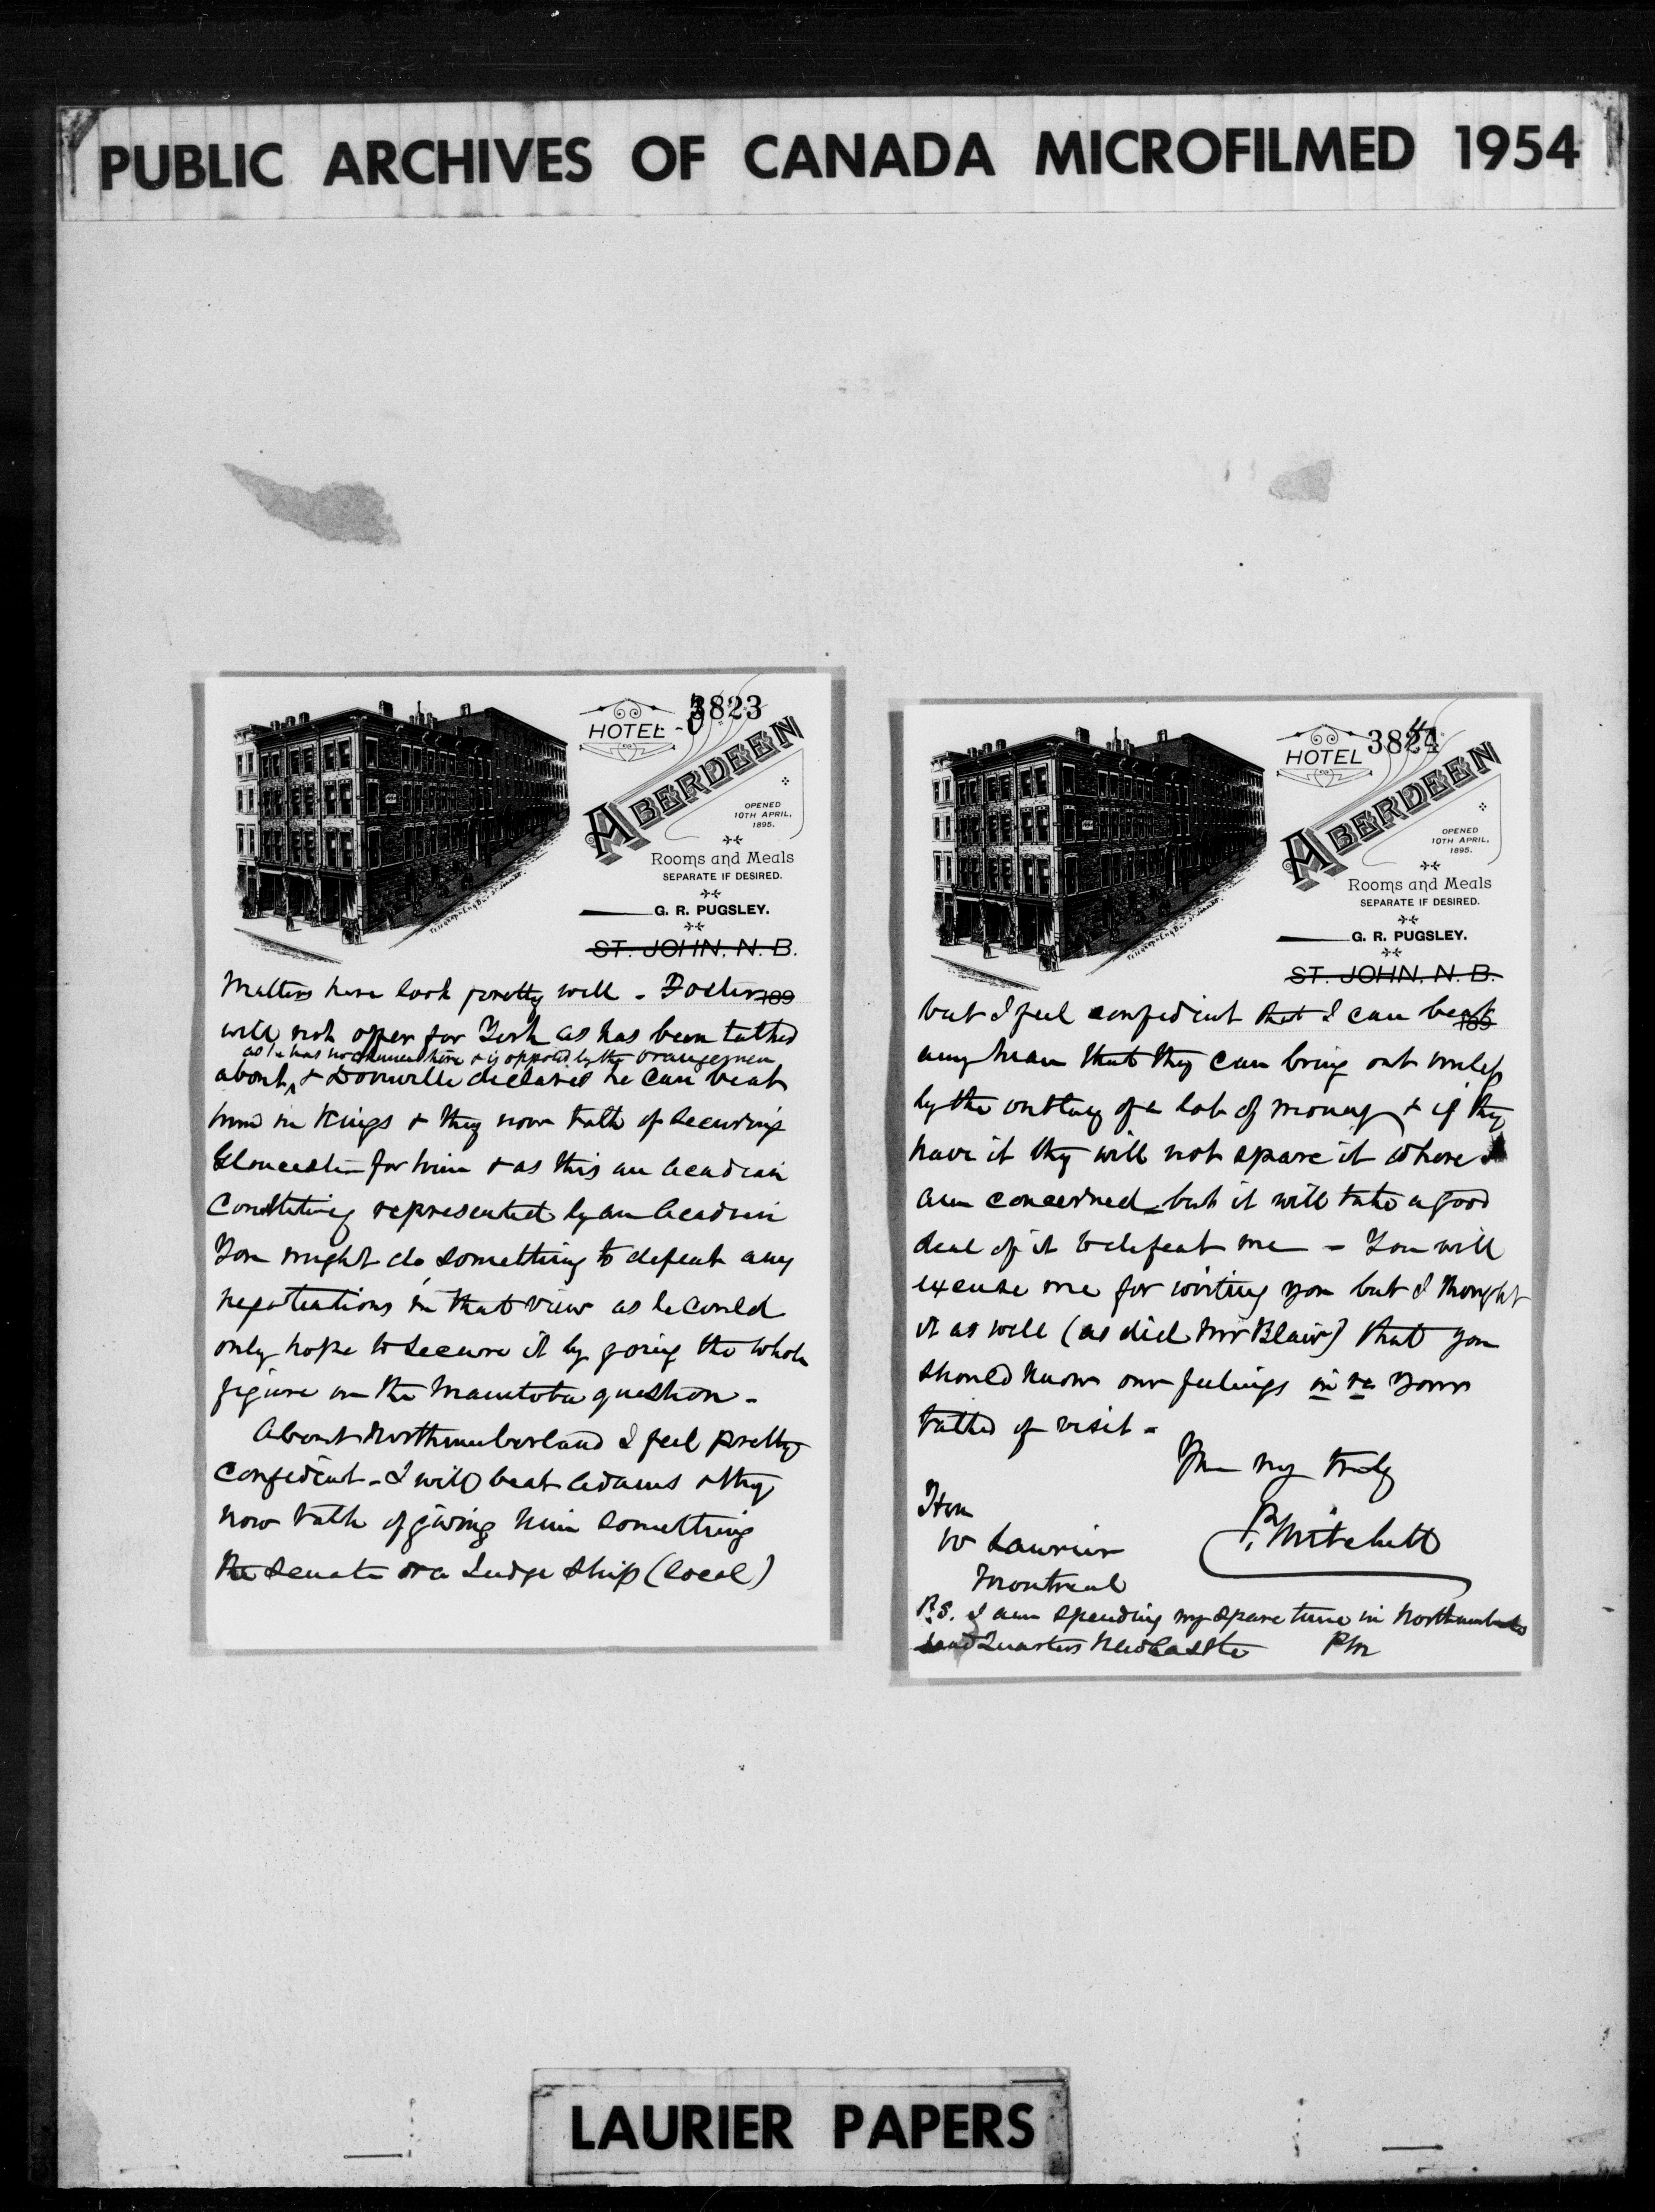 PUBLIC ARCHIVES OF CANADA MICROFILMED 1954
3823
HOTEL
ABERDEEN
OPENED
10TH APRIL,
1895.
Rooms and Meals
SEPARATE IF DESIRED.
G. R. PUGSLEY.
ST. JOHN, N. B.
189
Matters here look pretty well - Foster
will not offer for York as has been talked
as he has no chance here & is opposed by the Orangemen
about & Domville declares he can beat
him in Kings & they now talk of securing
Gloucester for him & as this an Acadian
Constituency represented by an Acadian
You might do something to defeat any
negotiations in that view as he could
only hope to secure it by going the whole
figure on the Manitoba question -
About Northumberland I feel pretty
confident - I will beat Adams & they
now talk of giving him something
the Senate or a Judge Ship (local)
3824
HOTEL
ABERDEEN
OPENED
10TH APRIL,
1895.
Rooms and Meals
SEPARATE IF DESIRED.
G. R. PUGSLEY.
ST. JOHN, N. B.
189
but I feel confident that I can beat
any man that they can bring out unless
by the outlay of a lot of money & if they
have it they will not spare it where I
am concerned - but it will take a good
deal of it to defeat me - You will
excuse me for writing you but I thought
it as well (as did Mr Blair) that you
should know our feelings in re Your
talked of visit -
Yours very truly
Hon
W Laurier
P. Mitchell
Montreal
P.S. I am spending my spare time in Northumberland
Quarters NewCastle PM
LAURIER PAPERS